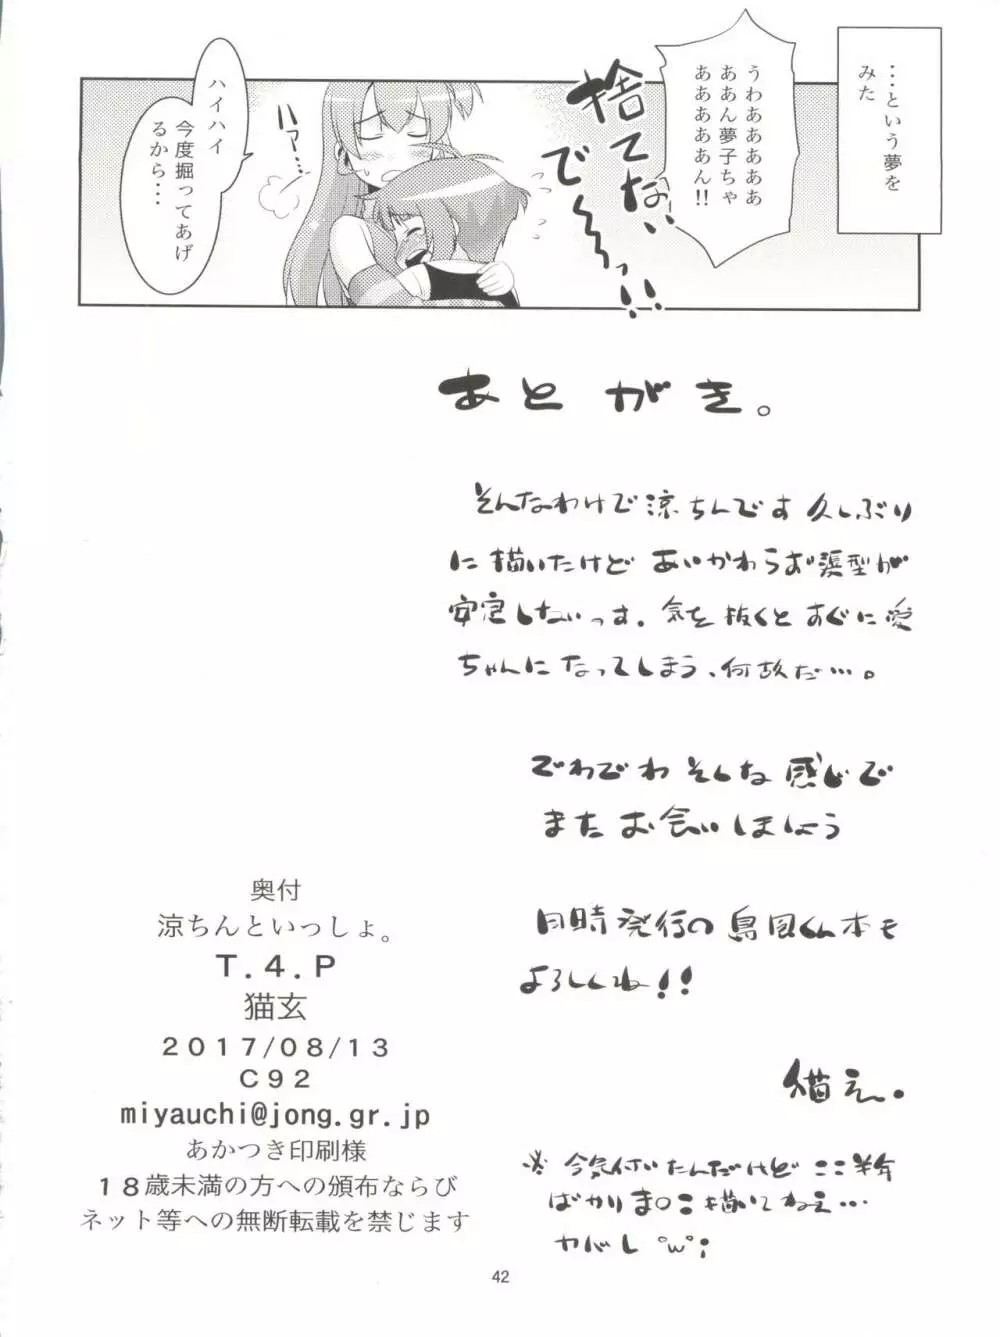 ・・・という夢を
みた
うわあああああ
ああん夢子ちゃ
ああああああん!!
捨てないで～～っ!!
ハァ…
ハイハイ
今度掘ってあげ
るから・・・
あとがき。
そんなわけで涼ちんです久しぶり
に描いたけどあいかわらず髪型が
安定しないっす。気を抜くとすぐに愛
ちゃんになってしまう、何故だ…。
でわでわそんな感じで
またお会いしましょう
同時発行の島風くん本も
よろしくね!!
猫玄。
※今気付いたんだけどここ半年
ばかりま○こ描いてねえ…
ヤバし °w°;
奥付
涼ちんといっしょ。
T.4.P
猫玄
2017/08/13
C92
miyauchi@jong.gr.jp
あかつき印刷様
18歳未満の方への頒布ならび
ネット等への無断転載を禁じます
42